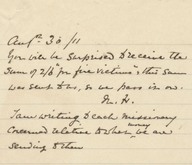 Augst 30/11
You will be surprised to receive the
sum of 2/6 for fire victims; this sum
was sent to us, so we pass it on.
M. H.
I am writing to each missionary
concerned relative to what money we are
sending to them